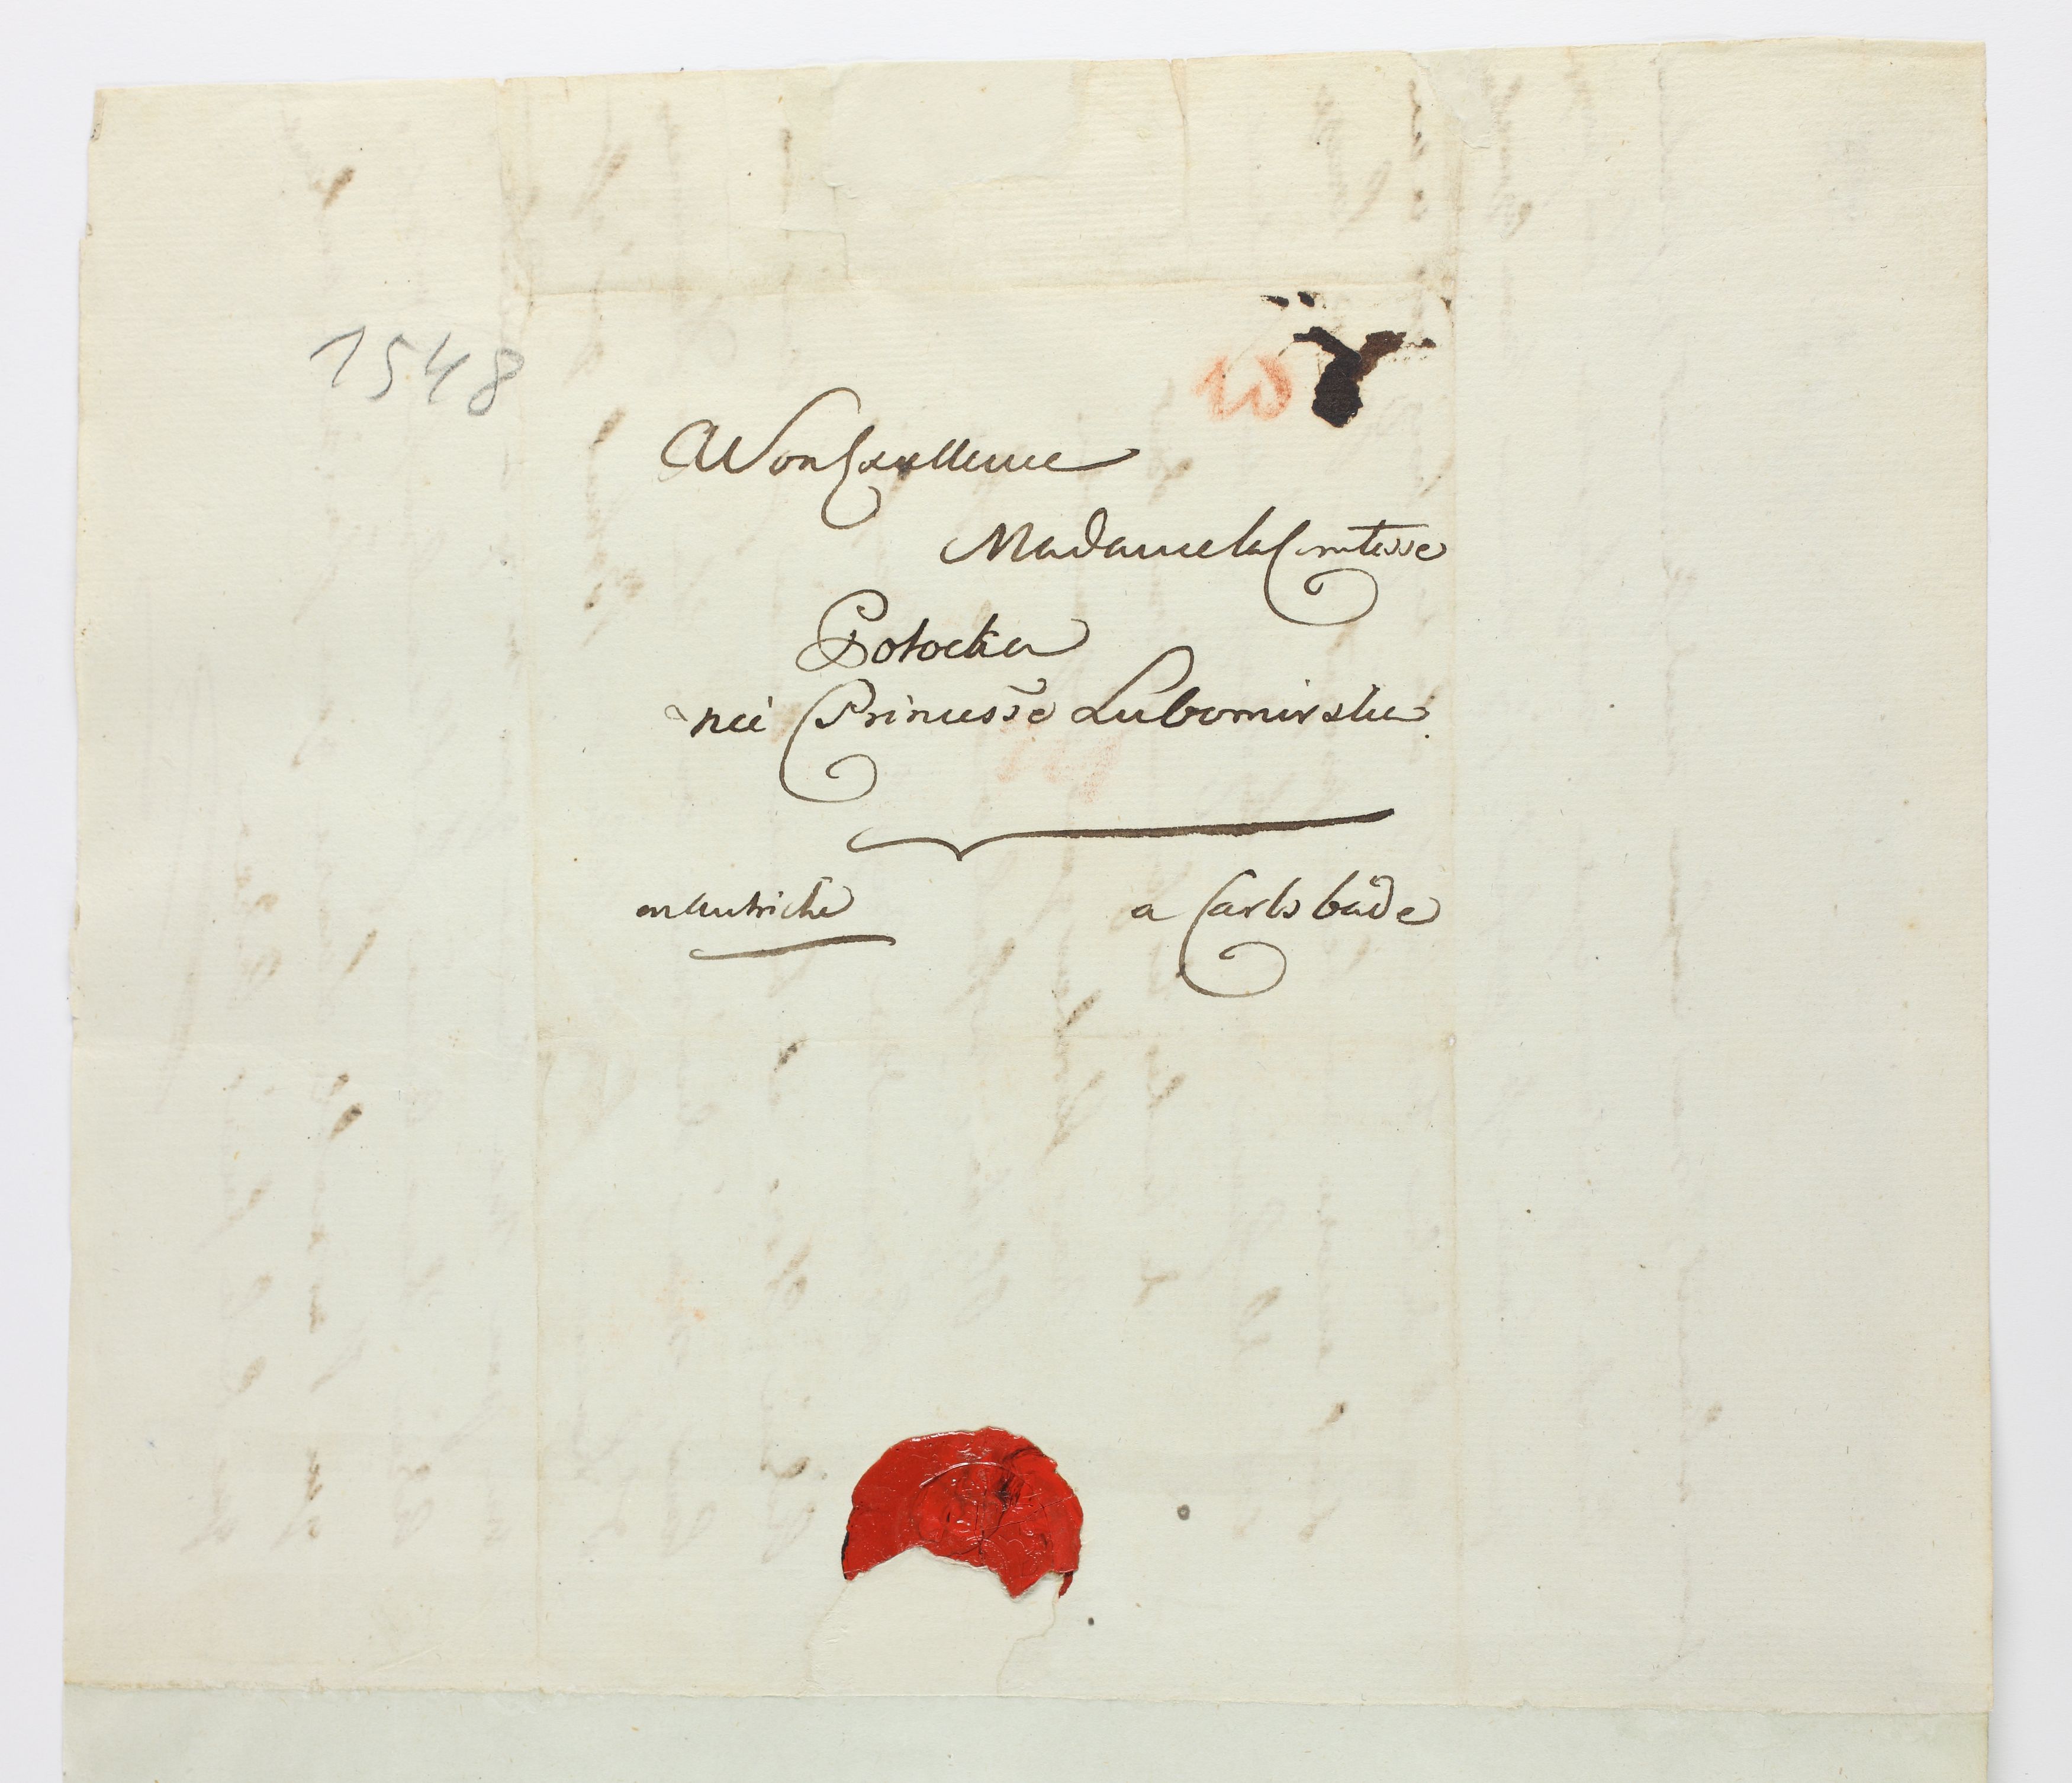 1548
10
A Son Excellence
Madame la Comtesse
Potocka
neé Princesse Lubomirska
en Autriche
a Carlsbade